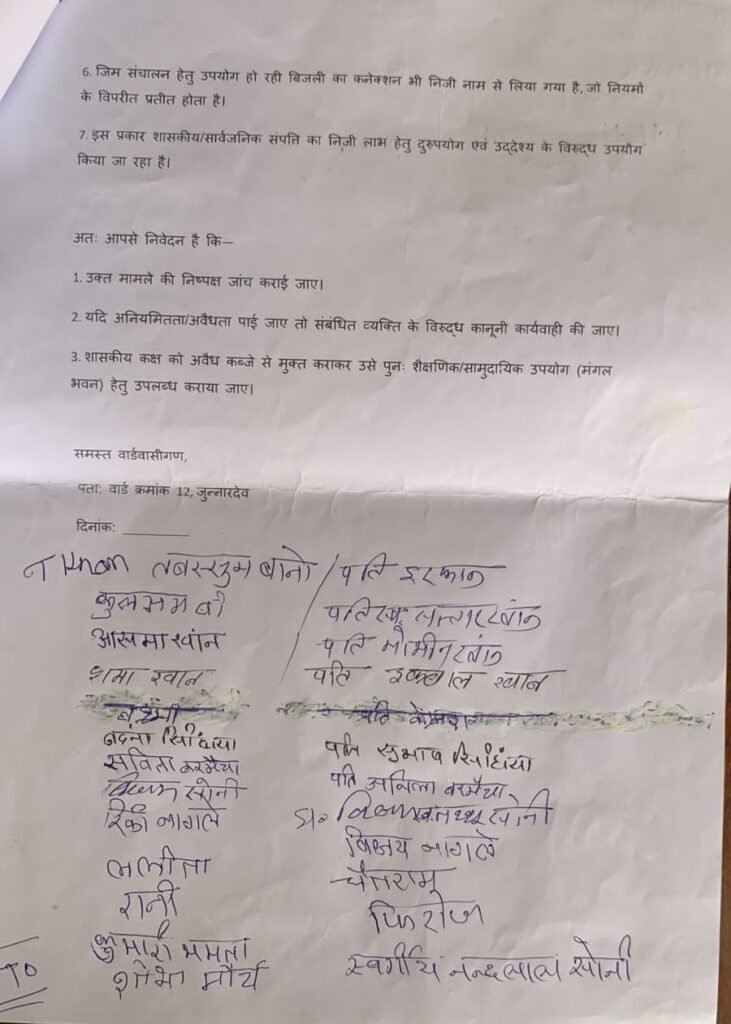 6. जिम संचालन हेतु उपयोग हो रही बिजली का कनेक्शन भी निजी नाम से लिया गया है, जो नियमों
के विपरीत प्रतीत होता है।
7. इस प्रकार शासकीय/सार्वजनिक संपत्ति का निजी लाभ हेतु दुरुपयोग एवं उद्देश्य के विरुद्ध उपयोग
किया जा रहा है।
अतः आपसे निवेदन है कि—
1. उक्त मामले की निष्पक्ष जांच कराई जाए।
2. यदि अनियमितता/अवैधता पाई जाए तो संबंधित व्यक्ति के विरुद्ध कानूनी कार्यवाही की जाए।
3. शासकीय कक्ष को अवैध कब्जे से मुक्त कराकर उसे पुनः शैक्षणिक/सामुदायिक उपयोग (मंगल
भवन) हेतु उपलब्ध कराया जाए।
समस्त वार्डवासीगण,
पता: वार्ड क्रमांक 12, जुन्नारदेव
दिनांक: ________
तबस्सुम बानो / पति इरफान
कुलसम बी पति
आसमा खांन पति मोमीन खांन
शमा खान पति इकबाल खान
पति सुभाष
सविता पति
सोनी सोनी
रिंकी नागले विजय नागले
ललीता चैतराम
रानी फिरोज
कुमारी ममता
शोभा मौर्य स्वर्गीय नन्दलाल सोनी